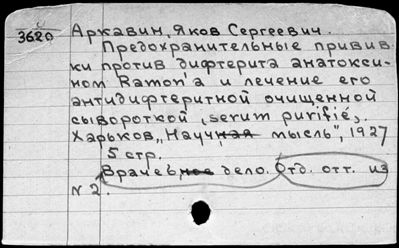 3620
Аркавин, Яков Сергеевич.
Предохранительные привив
ки против дифтерита анатокси-
ном Ramon'a и лечение его
антидифтеритной очищенной
сывороткой (serum purifié).
Харьков, "Научная мысль", 1927
5 стр.
Врачебное дело. Отд. отт. из
N 2.